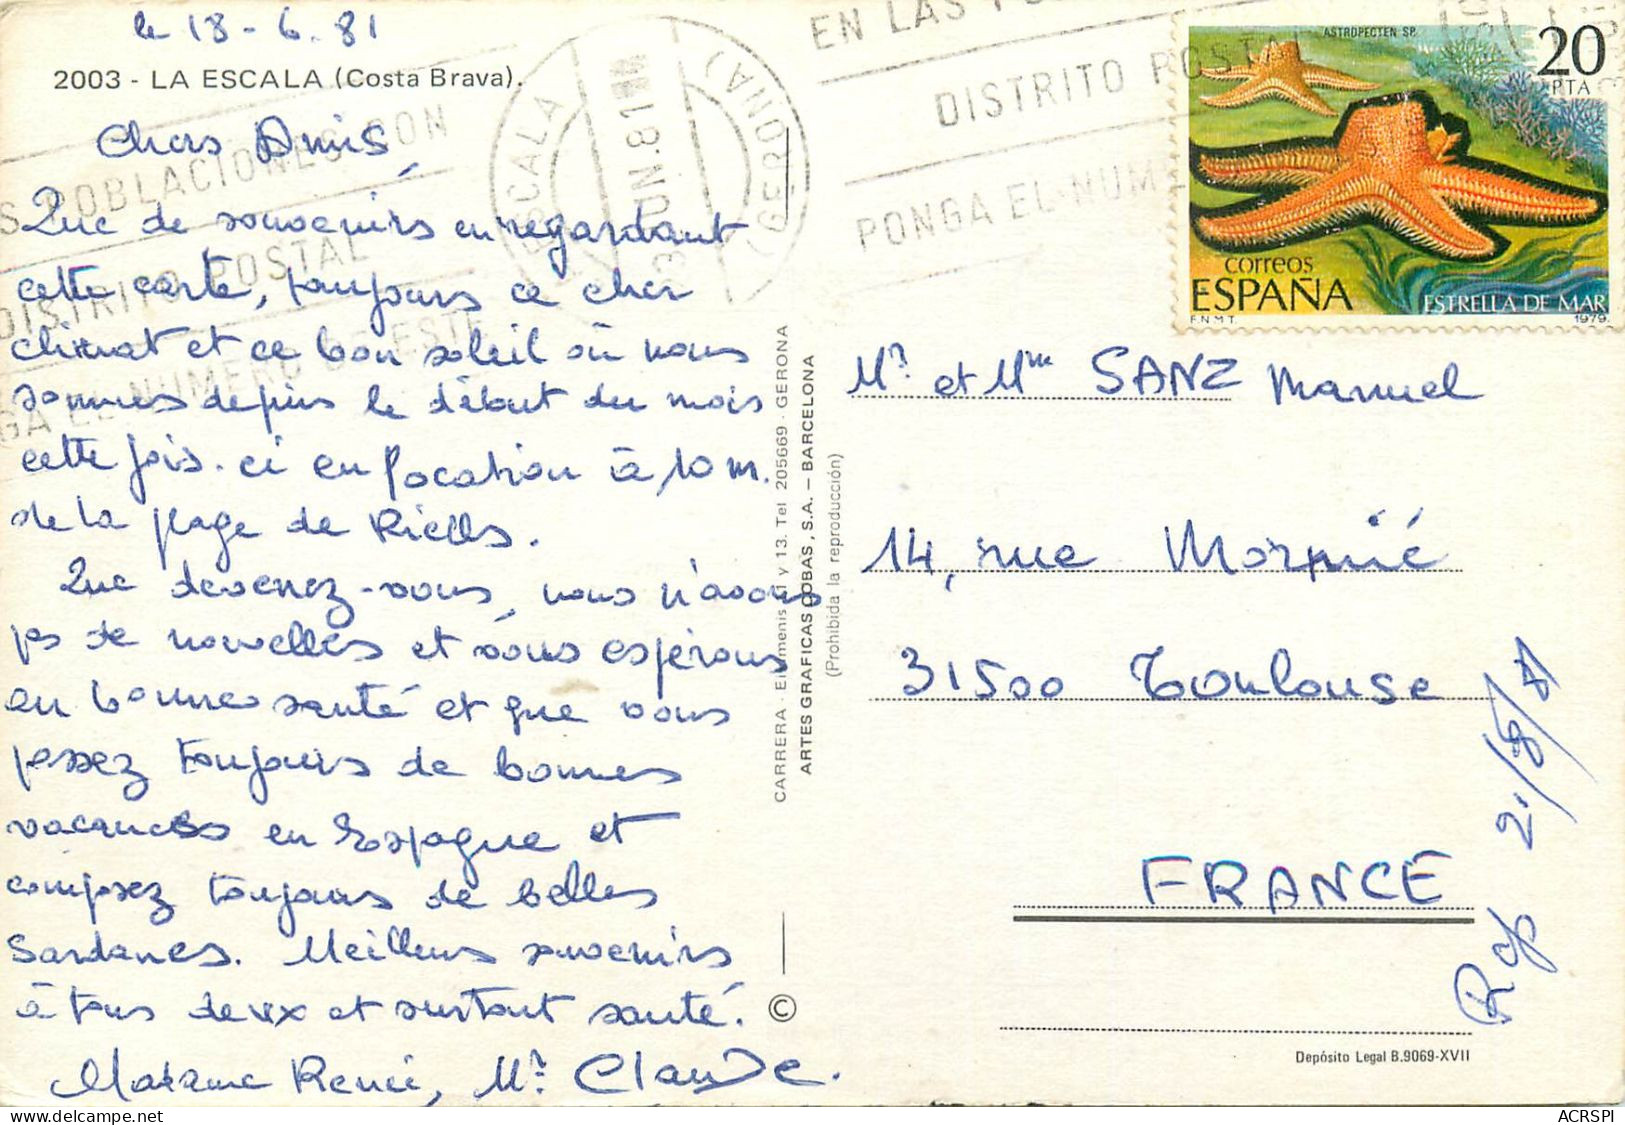 le 18-6.81
2003 - LA ESCALA (Costa Brava).
Chers Amis,
Que de souvenirs en regardant
cette carte, toujours ce cher
climat et ce bon soleil où nous
sommes depuis le début du mois
cette fois-ci en location à 10 m.
de la plage de Riells.
Que devenez-vous, nous n'avons
ps de nouvelles et vous espérons
en bonne santé et que vous
passez toujours de bonnes
vacances en Espagne et
compsez toujours de belles
Sardanes. Meilleurs souvenirs
à tous deux et surtout santé.
Madame Renée, Mr. Claude.
CARRERA - Eiximenis 11 y 13. Tel 205669 - GERONA
ARTES GRAFICAS COBAS, S.A. — BARCELONA
(Prohibida la reproducción)
©
EN LAS
DISTRITO POSTAL
PONGA EL NUME
S POBLACIONES CON
DISTRITO POSTAL
GA EL NUMERO DE ESTE
ESCALA
18 JUN.
(GERONA)
ASTROPECTEN SP.
20
PTA
correos
ESPAÑA
ESTRELLA DE MAR
F.N.M.T.
1979.
Mr. et Mme SANZ Manuel
14, rue
31500 Toulouse
FRANCE
Rep 21/8/81
Depósito Legal B.9069-XVII
ACRSPI